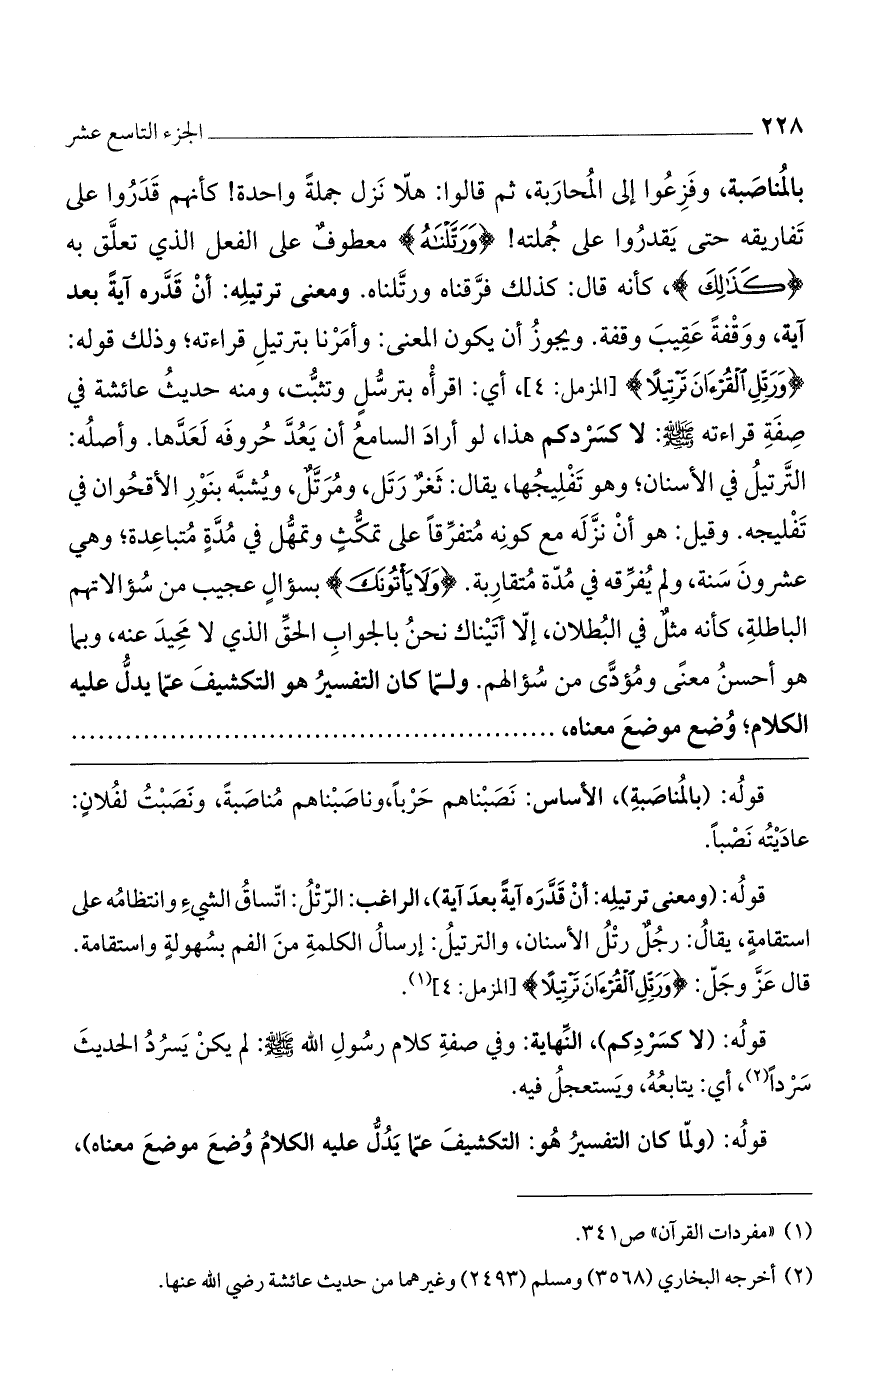 ٢٢٨ ــــــــــــــــــــــــــــ الجزء التاسع عشر
بالمُناصَبة، وفَزِعُوا إلى المُحارَبة، ثم قالوا: هلّا نَزل جملةً واحدة! كأنهم قَدَرُوا على
تَفاريقه حتى يَقدرُوا على جُملته! ﴿وَرَتَّلْنَٰهُ﴾ معطوفٌ على الفعل الذي تعلَّق به
﴿كَذَٰلِكَ﴾، كأنه قال: كذلك فرَّقناه ورتَّلناه. ومعنى ترتيلِه: أنْ قَدَّره آيةً بعد
آية، ووَقْفةً عَقِيبَ وقفة. ويجوزُ أن يكون المعنى: وأمَرْنا بترتيلِ قراءته؛ وذلك قوله:
﴿وَرَتِّلِ ٱلْقُرْءَانَ تَرْتِيلًا﴾ [المزمل: ٤]، أي: اقرأْه بترسُّلٍ وتثبُّت، ومنه حديثُ عائشة في
صِفَةِ قراءته ﷺ: لا كسَرْدكم هذا، لو أرادَ السامعُ أن يَعُدَّ حُروفَه لَعَدَّها. وأصلُه:
التَّرتيلُ في الأسنان؛ وهو تَفْليجُها، يقال: ثَغرٌ رَتَل، ومُرَتَّلٌ، ويُشبَّه بنَوْرِ الأقحُوان في
تَفْليجه. وقيل: هو أنْ نزَّلَه مع كونِه مُتفرِّقاً على تمكُّثٍ وتمهُّل في مُدَّةٍ مُتباعِدة؛ وهي
عشرونَ سَنة، ولم يُفرِّقه في مُدّة مُتقارِبة. ﴿وَلَا يَأْتُونَكَ﴾ بسؤالٍ عجيب من سُؤالاتهم
الباطلةِ، كأنه مثلٌ في البُطلان، إلّا أتَيْناك نحنُ بالجوابِ الحقِّ الذي لا مَحِيدَ عنه، وبما
هو أحسنُ معنًى ومُؤدًّى من سُؤالهم. ولـمّا كان التفسيرُ هو التكشيفَ عمّا يدلُّ عليه
الكلام؛ وُضع موضعَ معناه، ......................................................
قولُه: (بالمُناصَبةِ)، الأساس: نَصَبْناهم حَرْباً،وناصَبْناهم مُناصَبةً، ونَصَبْتُ لفُلانٍ:
عادَيْتُه نَصْباً.
قولُه: (ومعنى ترتيلِه: أنْ قَدَّرَه آيةً بعدَ آية)، الراغب: الرّتْلُ: اتّساقُ الشيءِ وانتظامُه على
استقامةٍ، يقالُ: رجُلٌ رتْلُ الأسنان، والترتيلُ: إرسالُ الكلمةِ منَ الفم بسُهولةٍ واستقامة.
قال عَزَّ وجَلّ: ﴿وَرَتِّلِ ٱلْقُرْءَانَ تَرْتِيلًا﴾ [المزمل: ٤](١).
قولُه: (لا كسَرْدِكم)، النِّهاية: وفي صفةِ كلام رسُولِ الله ﷺ: لم يكنْ يَسرُدُ الحديثَ
سَرْداً(٢)، أي: يتابعُهُ، ويَستعجلُ فيه.
قولُه: (ولمّا كان التفسيرُ هُو: التكشيفَ عمّا يَدُلُّ عليه الكلامُ وُضعَ موضعَ معناه)،
(١) «مفردات القرآن» ص٣٤١.
(٢) أخرجه البخاري (٣٥٦٨) ومسلم (٢٤٩٣) وغيرهما من حديث عائشة رضي الله عنها.